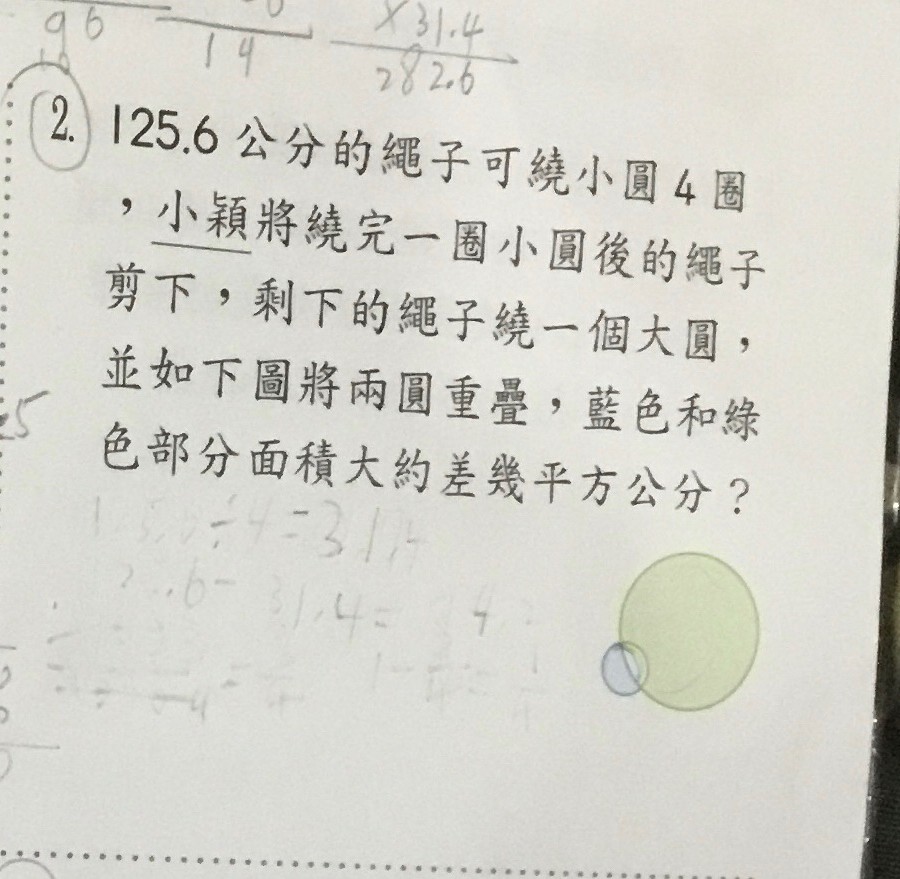 96
14
×31.4
282.6
2. 125.6公分的繩子可繞小圓4圈
,小穎將繞完一圈小圓後的繩子
剪下,剩下的繩子繞一個大圓,
並如下圖將兩圓重疊,藍色和綠
色部分面積大約差幾平方公分?
5
÷4=31.4
.6- 31.4=